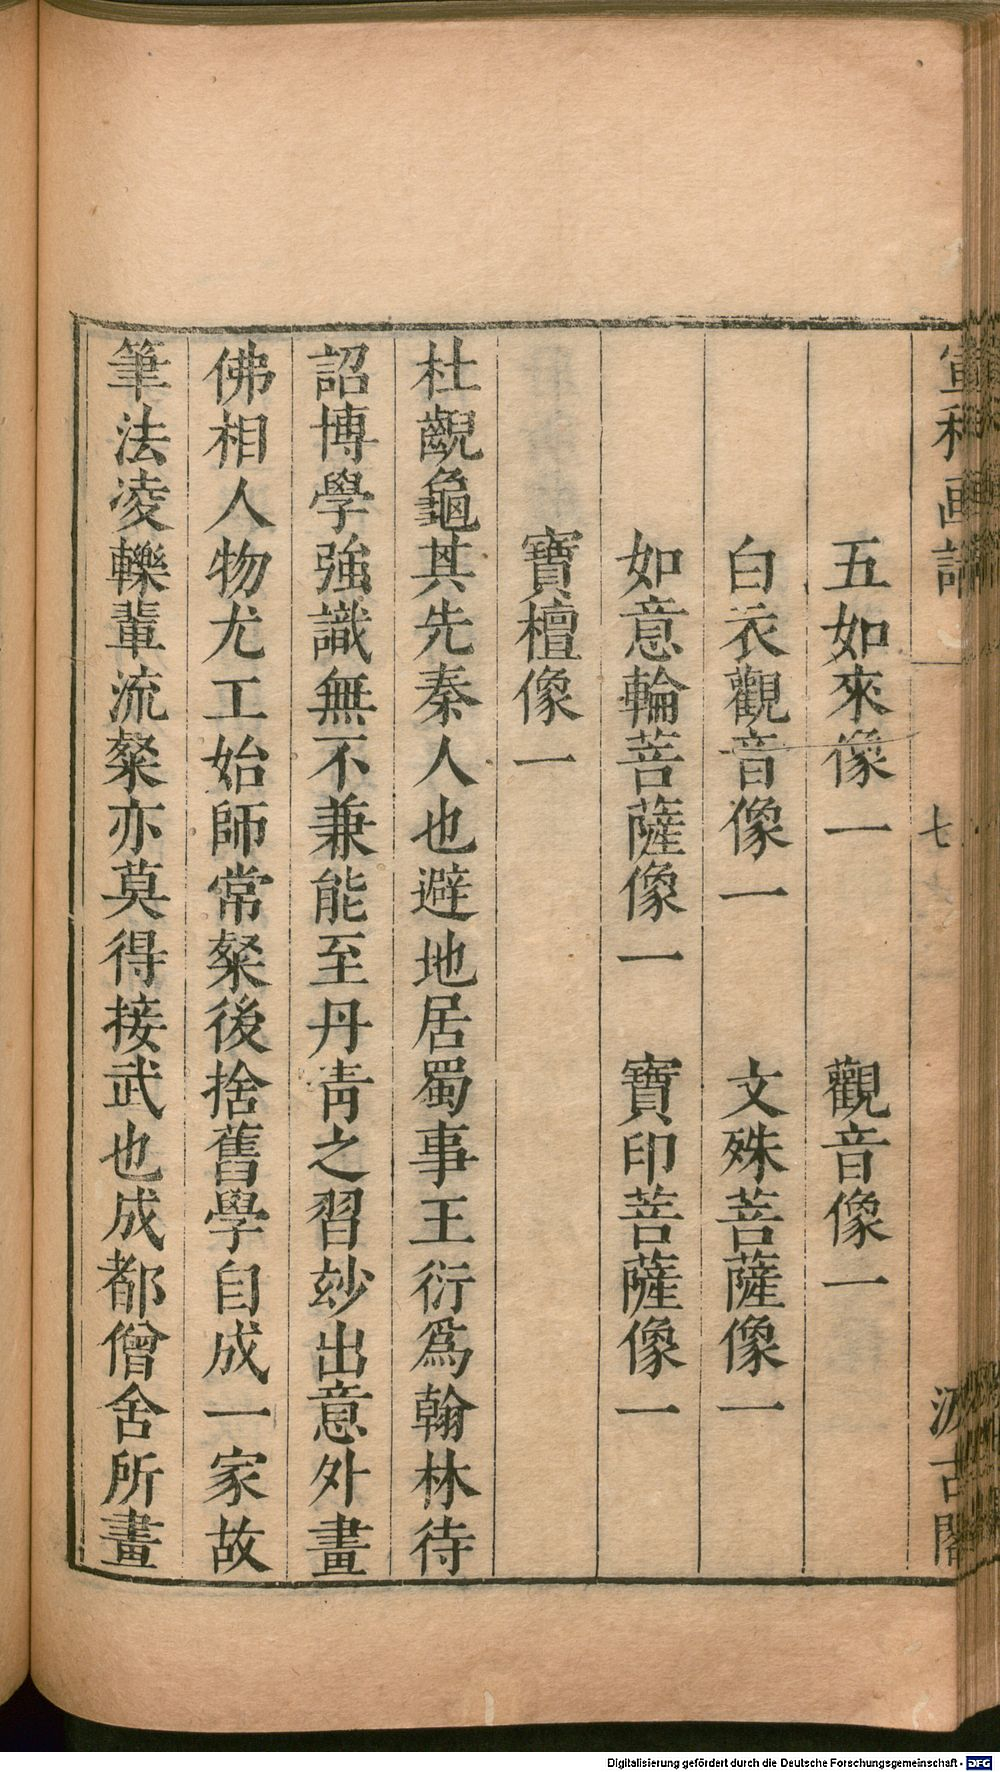 宣和画譜
七
汲古閣
五如來像一　觀音像一
白衣觀音像一　文殊菩薩像一
如意輪菩薩像一　寶印菩薩像一
寶檀像一
杜齯龜其先秦人也避地居蜀事王衍爲翰林待
詔博學強識無不兼能至丹青之習玅出意外畫
佛相人物尤工始師常粲後捨舊學自成一家故
筆法凌轢輩流粲亦莫得接武也成都僧舍所畫
Digitalisierung gefördert durch die Deutsche Forschungsgemeinschaft - DFG